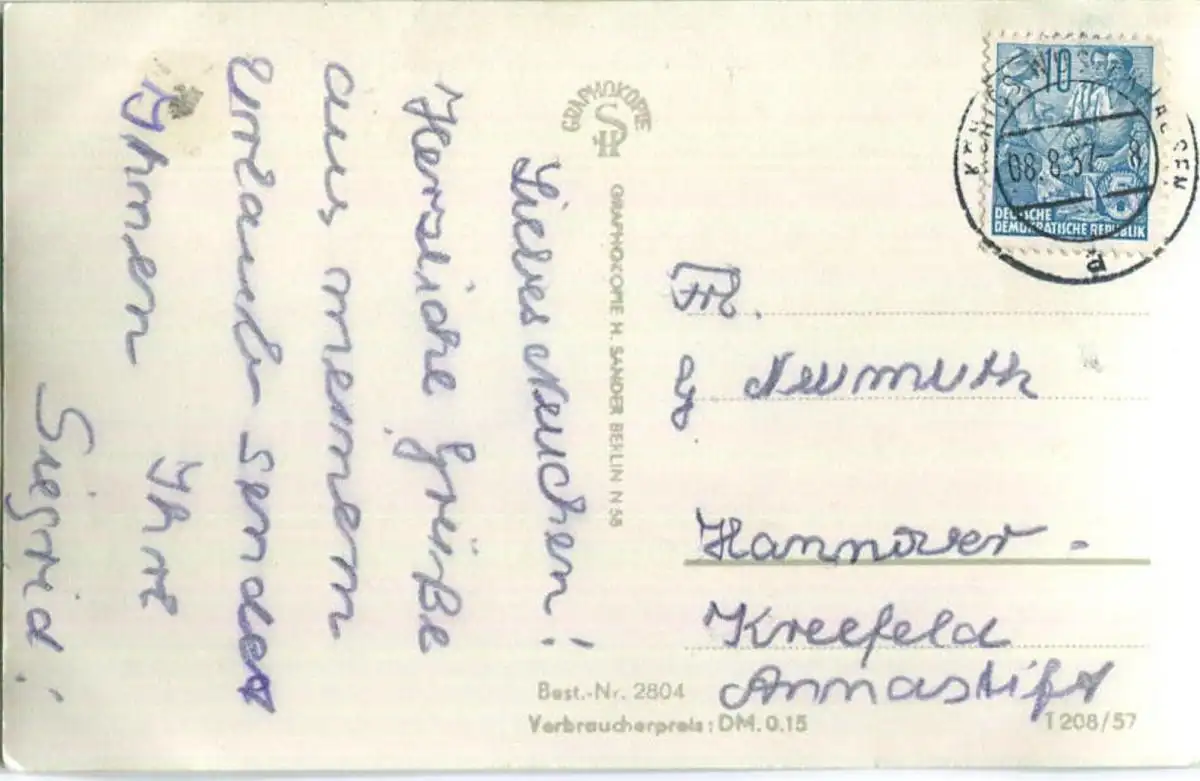 Liebes Neuchen!
Herzliche Grüße
aus meinem
Urlaub sendet
Ihnen Ihre
Sigrid!
GRAPHOKOPIE
HS
GRAPHOKOPIE H. SANDER BERLIN N 58
10
DEUTSCHE
DEMOKRATISCHE REPUBLIK
08.8.57-8
d
Frl.
Neumuth
Hannover-
Kleefeld
Annastift
Best.-Nr. 2804
Verbraucherpreis: DM. 0.15
T 208/57